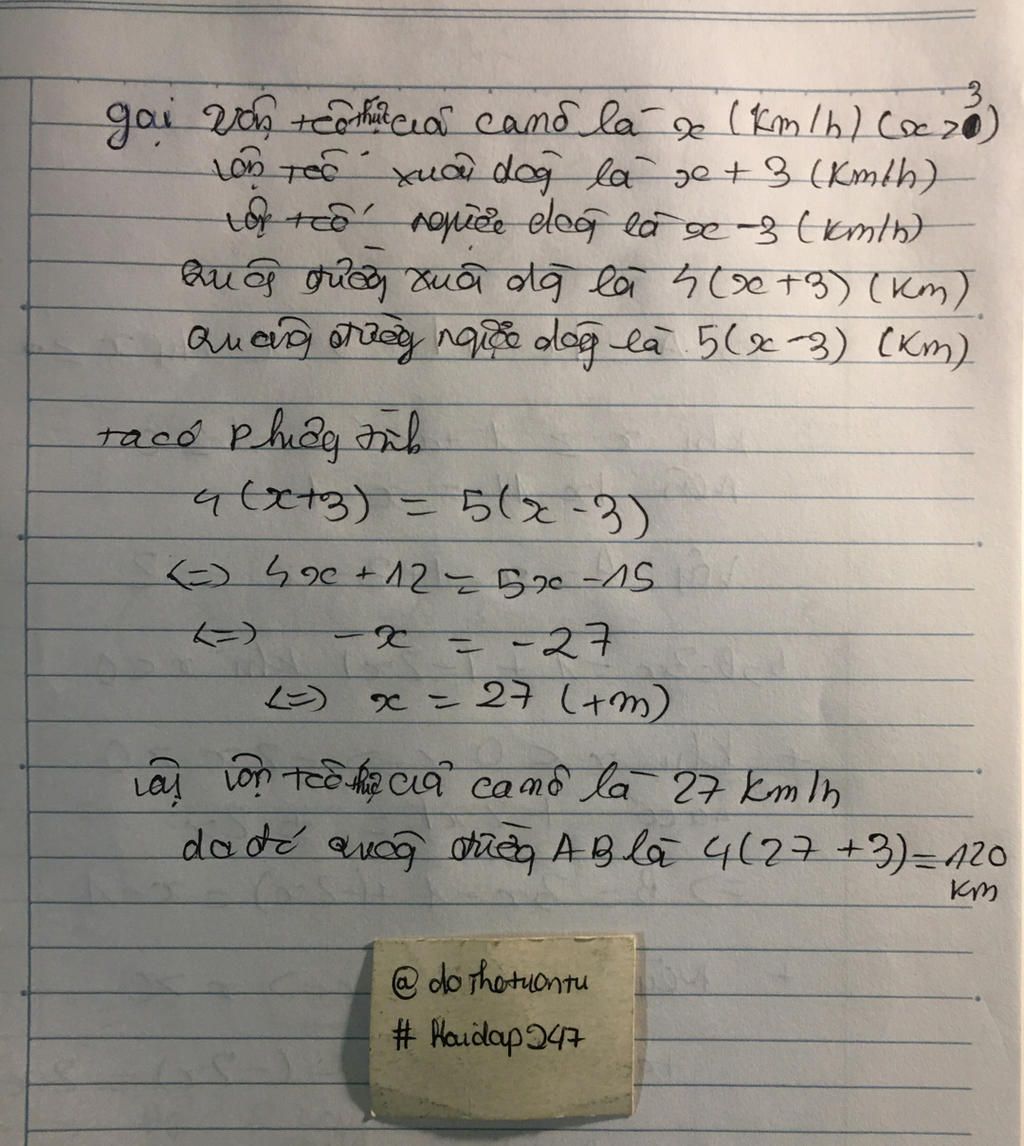 gọi vận tốc thực của canô là x (km/h) (x > 3)
vận tốc xuôi dòng là x + 3 (km/h)
vận tốc ngược dòng là x - 3 (km/h)
Quãng đường xuôi dòng là 4(x+3) (km)
Quãng đường ngược dòng là 5(x-3) (km)
ta có phương trình
4(x+3) = 5(x-3)
<=> 4x + 12 = 5x - 15
<=> -x = -27
<=> x = 27 (tm)
vậy vận tốc thực của canô là 27 km/h
do đó quãng đường AB là 4(27+3) = 120
km
@ dothotuontu
# Hoidap247